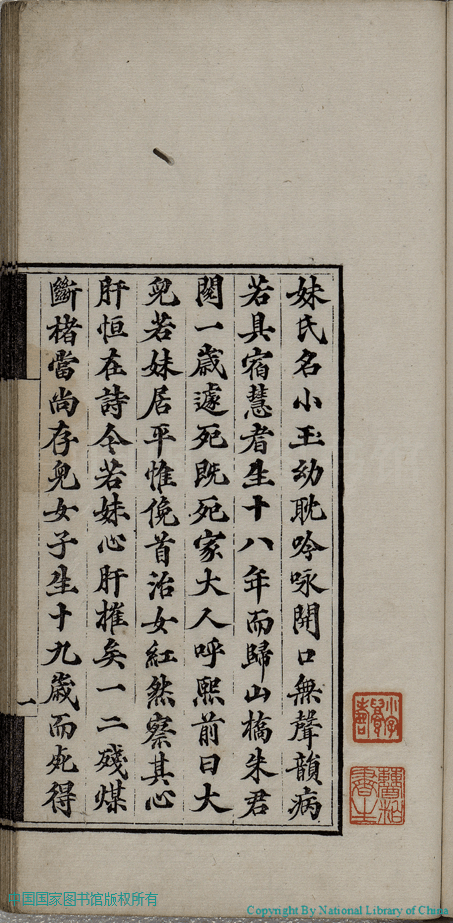 妹氏名小玉幼耽吟咏開口無聲韻病
若具宿慧者生十八年而歸山橋朱君
閱一歲遽死既死家大人呼熙前曰大
兒若妹居平惟俛首治女紅然察其心
肝恒在詩今若妹心肝摧矣一二殘煤
斷楮當尚存兒女子生十九歲而死得
一
中国国家图书馆版权所有
Copyright By National Library of China